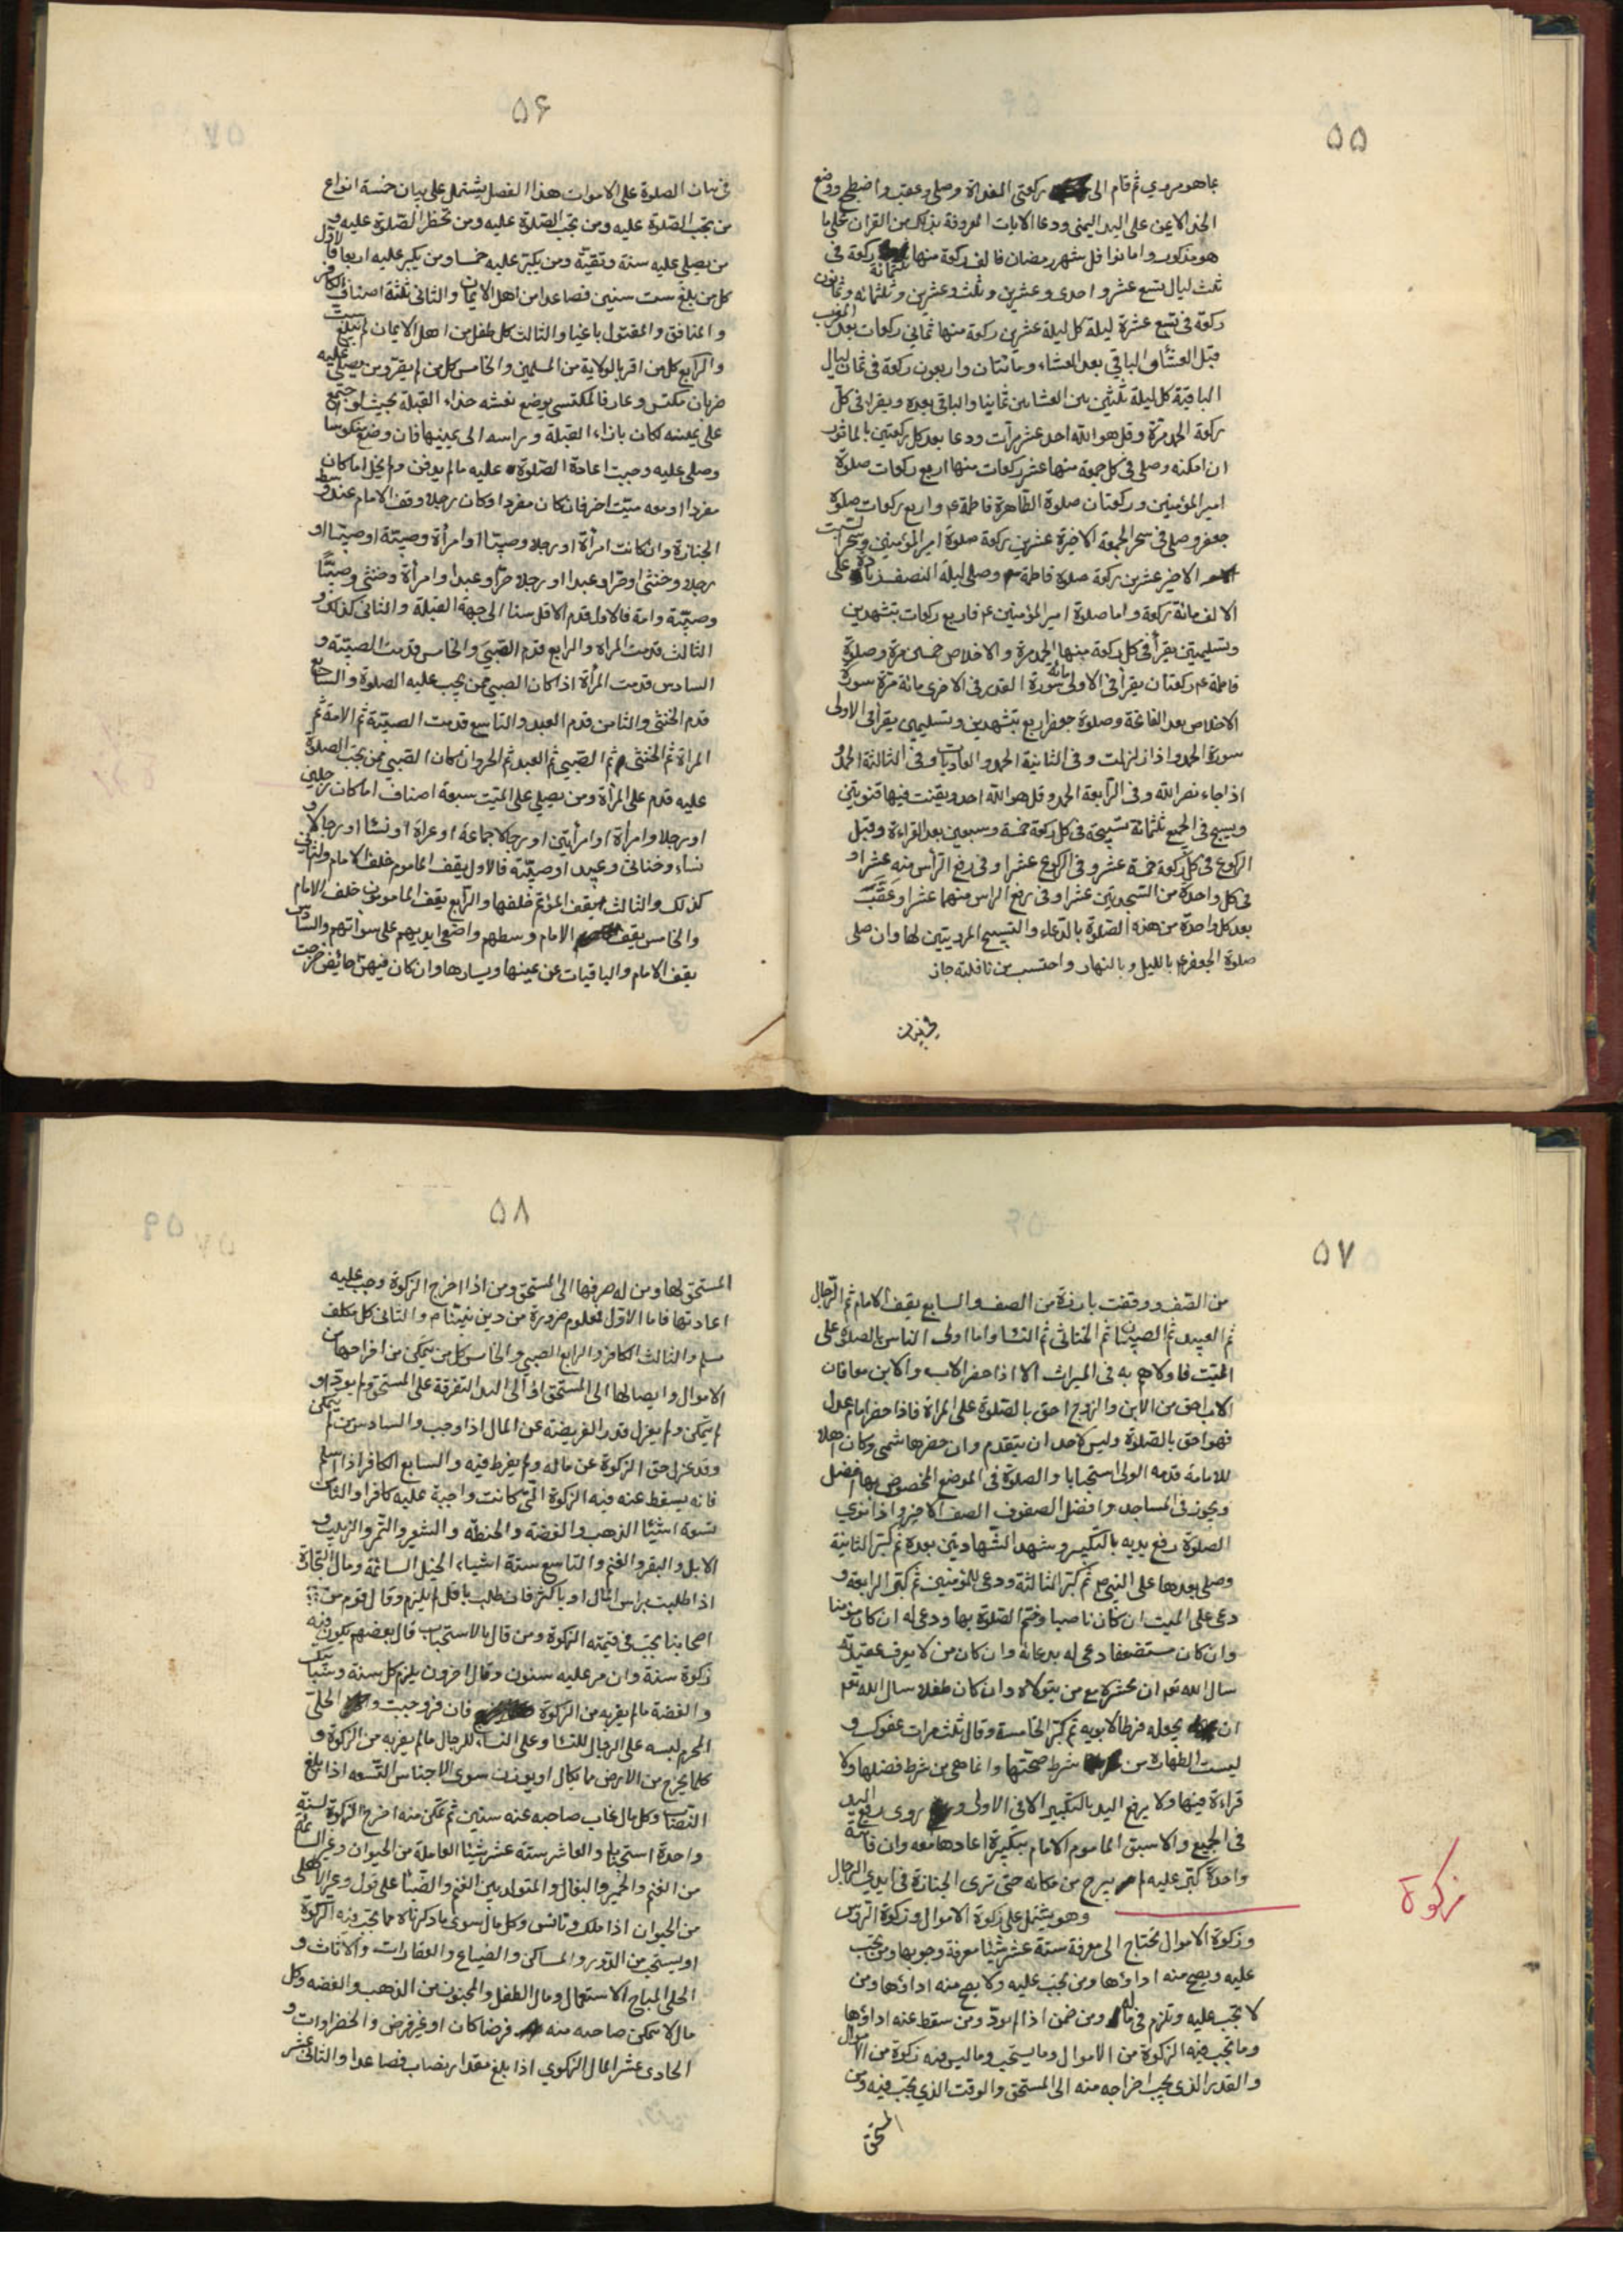 ۵۵
بما هو مروي ثم قام الى ركعتى الغداة وصلى وعقب واضطجع ووضع
الخد الايمن على اليد اليمنى ودعا الايات المعروفة بذلك من القران على ما
هو مذكور واما نوافل شهر رمضان فالف ركعة منها ثلثمائة ركعة فى
ثلث ليال تسع عشر واحدى وعشرين وثلث وعشرين وثلثمائه وثمانون
ركعة فى تسع عشرة ليلة كل ليلة عشرين ركعة منها ثمانى ركعات بعد المغرب
قبل العشاء والباقي بعد العشاء ومائتان واربعون ركعة فى ثمان ليال
الباقية كل ليلة ثلثين بين العشائين ثمانيا والباقى بعده ويقرا فى كل
ركعة الحمد مرة وقل هو الله احد عشر مرات ودعا بعد كل ركعتين بالماثور
ان امكنه وصلى فى كل جمعة منها عشر ركعات منها اربع ركعات صلوة
امير المؤمنين وركعتان صلوة الطاهرة فاطمة ع واربع ركعات صلوة
جعفر وصلى فى سحر الجمعة الاخيرة عشرين ركعة صلوة امير المؤمنين وسحر السبت
الاخير عشرين ركعة صلوة فاطمة وصلى ليلة النصف زيادة على
الالف مائة ركعة واما صلوة امير المؤمنين ع فاربع ركعات بتشهدين
وتسليمتين يقرأ فى كل ركعة منها الحمد مرة والاخلاص خمسين مرة وصلوة
فاطمة ع ركعتان يقرأ فى الاولى مائة سورة القدر فى الاخرى مائة مرة سورة
الاخلاص بعد الفاتحة وصلوة جعفر اربع بتشهدين وتسليمين يقرأ فى الاولى
سورة الحمد واذا زلزلت وفى الثانية الحمد والعاديات وفى الثالثة الحمد و
اذا جاء نصر الله وفى الرابعة الحمد وقل هو الله احد ويقنت فيها قنوتين
ويسبح فى الجميع ثلثمائة تسبيحة فى كل ركعة خمسة وسبعين بعد القراءة وقبل
الركوع فى كل ركعة خمسة عشر وفى الركوع عشرا وفى رفع الرأس منه عشرا و
فى كل واحدة من السجدتين عشرا وفى رفع الراس منهما عشرا وعقب
بعد كل واحدة من هذه الصلوة بالدعاء والتسبيح المرويتين لها وان صلى
صلوة الجعفر ع بالليل وبالنهار واحتسب من نافلته جاز
في بيان
۵۶
فى بيان الصلوة على الاموات هذا الفصل يشتمل على بيان خمسة انواع
من يجب الصلوة عليه ومن تجب الصلوة عليه ومن تحظر الصلوة عليه و
من يصلي عليه سنة وتقية ومن يكبر عليه خمسا ومن يكبر عليه اربعا فالاول
كل من بلغ ست سنين فصاعدا من اهل الايمان والثانى ثلثة اصناف الكافر
والمنافق والمقتول باغيا والثالث كل طفل من اهل الايمان لم يبلغ ست
والرابع كل من اقر بالولاية من المسلمين والخامس كل من لم يقر ومن يصلي عليه
ضربان مكتس وعار فالمكتسى يوضع نعشه حذاء القبلة بحيث لو اضجع
على يمينه لكان بازاء القبلة وراسه الى يمينها فان وضع منكوسا
وصلى عليه وجبت اعادة الصلوة عليه ما لم يدفن ولم يخل اما كان
مفردا او معه ميت اخر فان كان مفردا وكان رجلا وقف الامام عند وسط
الجنازة وان كانت امرأة او رجلا وصبيا او امرأة وصبية او صبيا او
رجلا وخنثى او حرا وعبدا او رجلا حرا وعبدا وامرأة وخنثى وصبيا
وصبية وامة فالاول قدم الاقل سنا الى جهة القبلة والثانى كذلك و
الثالث قدمت المراة والرابع قدم الصبي والخامس قدمت الصبية و
السادس قدمت المرأة اذا كان الصبي ممن يجب عليه الصلوة والسابع
قدم الخنثى والثامن قدم العبد والتاسع قدمت الصبية ثم الامة ثم
المراة ثم الخنثى ثم الصبي ثم العبد ثم الحر وان كان الصبي ممن تجب الصلوة
عليه قدم على المرأة ومن يصلي على الميت سبعة اصناف اما كان رجلين
او رجلا وامرأة او امرأتين او رجالا جماعة او عراة او نسا او رجالا و
نساء وخناثى وعبيد او صبية فالاول يقف الماموم خلف الامام والثانى
كذلك والثالث يقف المؤتم خلفها والرابع يقف المامومون خلف الامام
والخامس يقف الامام وسطهم واضعى ايديهم على سوأتهم والسادس
يقف الامام والباقيات عن يمينها ويسارها وان كان فيهن حائض خرجت
۵۷
من الصف ووقفت بارزة من الصف والسابع يقف الامام ثم الرجال
ثم العبيد ثم الصبيان ثم الخناثى ثم النسا واما اولى الناس بالصلوة على
الميت فاولاهم به فى الميراث الا اذا حضر الاب والابن معا فان
الاب احق من الابن والزوج احق بالصلوة على المراة فاذا حضر امام عدل
فهو احق بالصلوة وليس لاحد ان يتقدم وان حضر هاشمى وكان اهلا
للامامة قدمه الولى استحبابا والصلوة فى الموضع المخصوص بها افضل
ويجوز فى المساجد وافضل الصفوف الصف الاخير واذا نوي
الصلوة رفع يديه بالتكبير وشهد الشهادتين بعده ثم كبر الثانية
وصلى بعدها على النبي ص ثم كبر الثالثة ودعى للمؤمنين ثم كبر الرابعة و
دعى على الميت ان كان ناصبا وختم الصلوة بها ودعى له ان كان مؤمنا
وان كان مستضعفا دعى له بدعائه وان كان من لا يعرف عقيدته
سال الله تع ان يحشره مع من يتولاه وان كان طفلا سال الله تع
ان يجعله فرطا لابويه ثم كبر الخامسة وقال ثلث مرات عفوك و
ليست الطهارة من شرط صحتها وانما هى من شرط فضلها ولا
قراءة فيها ولا يرفع اليد بالتكبير الا فى الاولى و روى رفع اليد
فى الجميع والا سبق الماموم الامام بتكبيرة اعادها معه وان فاتته
واحدة كبر عليه لم يبرح من مكانه حتى ترى الجنازة فى ايدي الرجال
وهو يشتمل على زكوة الاموال وزكوة الروس
زكوة
وزكوة الاموال تحتاج الى معرفة ستة عشر شيئا معرفة وجوبها ومن تجب
عليه ويصح منه اداؤها ومن تجب عليه ولا يصح منه اداؤها ومن
لا تجب عليه وتلزم فى ماله ومن ضمن اذا لم يود ومن سقط عنه اداؤها
وما تجب فيه الزكوة من الاموال وما يستحب وما ليس فيه زكوة من الاموال
والقدر الذى يجب اخراجه منه الى المستحق والوقت الذي تجب فيه ومن
المستحق
۵۸
المستحق لها ومن له صرفها الى المستحق ومن اذا اخرج الزكوة وجب عليه
اعادتها فاما الاول فمعلوم ضرورة من دين نبينا ص والثانى كل مكلف
مسلم والثالث الكافر والرابع الصبي والخامس كل من تمكن من اخراجها من
الاموال وايصالها الى المستحق او الى اليد التفرقة على المستحق ولم يود او
لم يتمكن ولم يعزل قدر الفريضة عن المال اذا وجب والسادس من لم يتمكن
وقد عزل حق الزكوة عن ماله ولم يفرط فيه والسابع الكافر اذا اسلم
فانه يسقط عنه فيه الزكوة التى كانت واجبة عليه كافرا والثامن
تسعة اشيا الذهب والفضة والحنطة والشعير والتمر والزبيب و
الابل والبقر والغنم والتاسع ستة اشياء الخيل السائمة ومال التجارة
اذا طلبت براس المال او باكثر فان طلب باقل لم يلزم وقال قوم من
اصحابنا تجب فى قيمته الزكوة ومن قال بالاستحباب قال بعضهم يكون فيه
زكوة سنة وان مر عليه سنون وقال اخرون يلزم كل سنة وسبائك
والفضة ما لم يفر به من الزكوة فان فر وجبت و الحلى
المحرم لبسه على الرجال للنسا وعلى النساء للرجال ما لم يفر به من الزكوة و
كلما يخرج من الارض مما يكال او يوزن سوى الاجناس التسعه اذا بلغ
النصاب وكل مال غاب صاحبه عنه سنين ثم تمكن منه اخرج الزكوة لسنة
واحدة استحبابا والعاشر ستة عشر شيئا العاملة من الحيوان وغير السائمة
من الغنم والحمير والبغال والمتولد بين الغنم والضبا على قول وغير الاهلى
من الحيوان اذا ملك وتانس وكل مال سوى ما ذكرناه مما تجب فيه الزكوة
او يستحب من الدور والمساكن والضياع والعقارات والاثاث و
الحلى المباح الاستعمال ومال الطفل والمجنون من الذهب والفضه وكل
مال لا يتمكن صاحبه منه قرضا كان او غير قرض والخضراوات و
الحادى عشر المال الزكوي اذا بلغ مقدار نصاب فصاعدا والثانى عشر